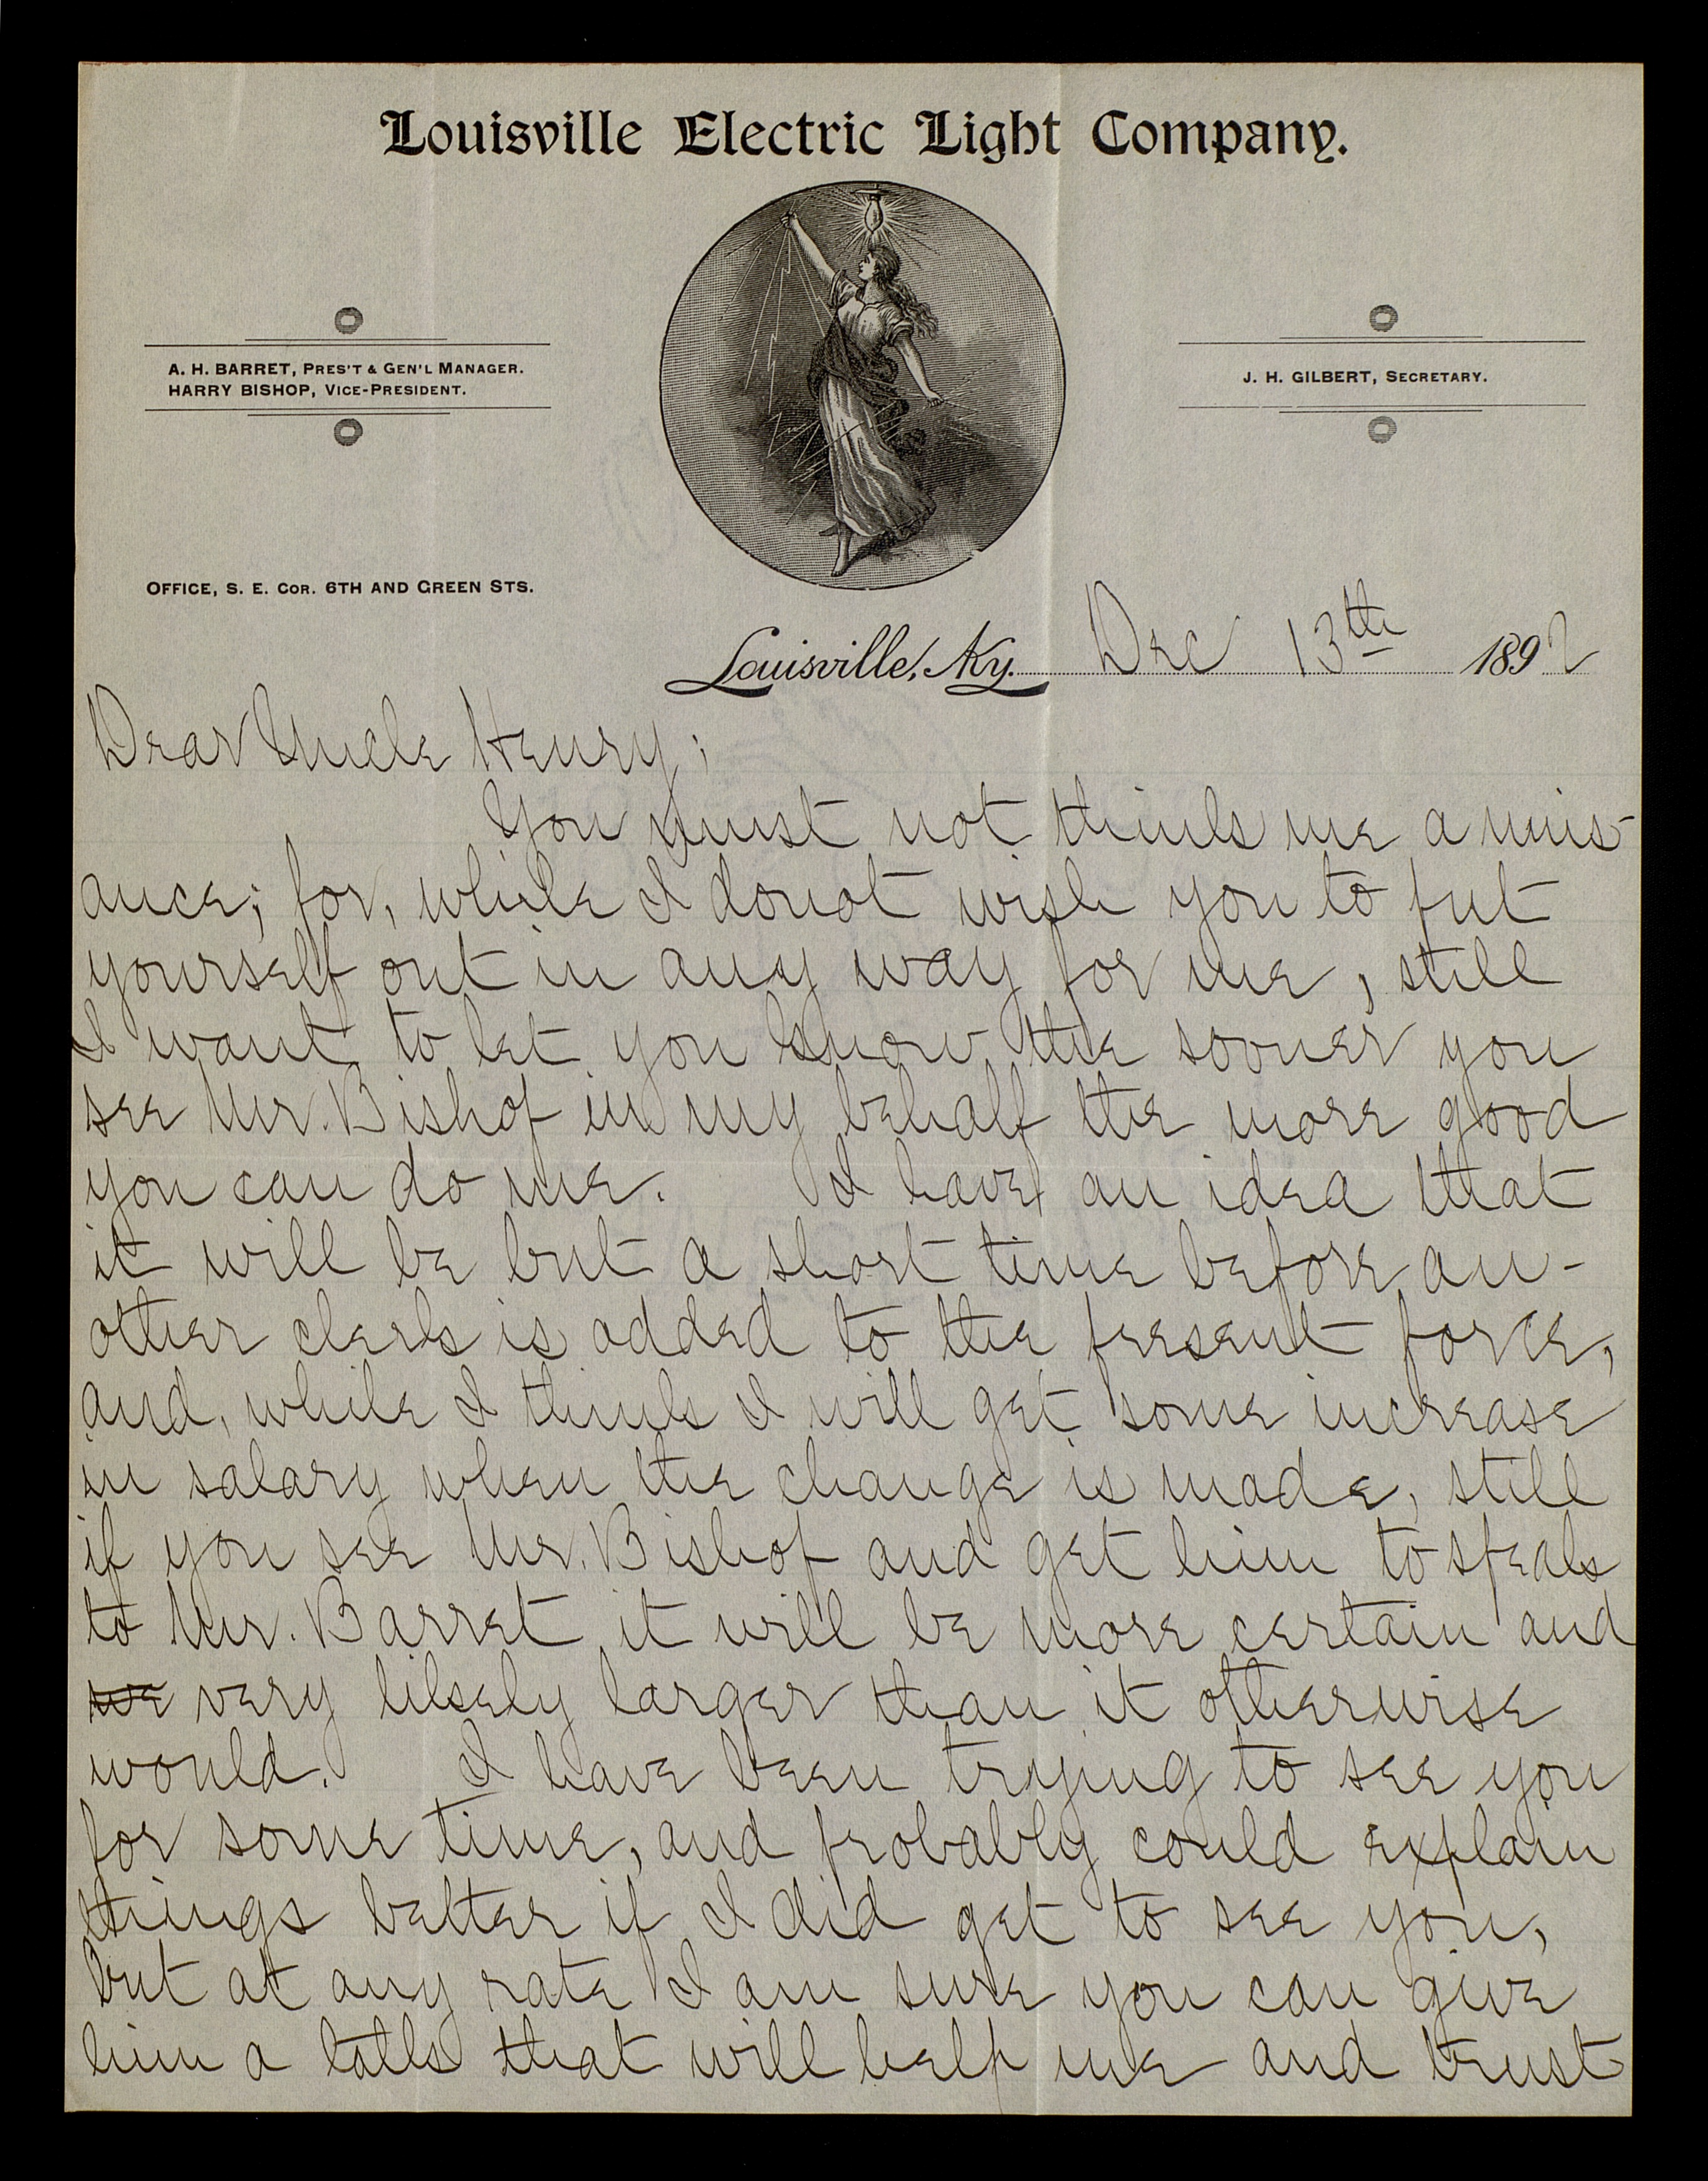 Louisville Electric Light Company.
A. H. BARRET, PRES'T & GEN'L MANAGER.
HARRY BISHOP, VICE-PRESIDENT.
J. H. GILBERT, SECRETARY.
OFFICE, S. E. COR. 6TH AND GREEN STS.
Louisville, Ky. Dec 13th 1892
Dear Uncle Henry;
You must not think me a nuis-
ance; for, while I donot wish you to put
yourself out in any way for me, still
I want to let you know the sooner you
see Mr. Bishop in my behalf the more good
you can do me. I have an idea that
it will be but a short time before an-
other clerk is added to the present force,
and, while I think I will get some increase
in salary when the change is made, still
if you see Mr. Bishop and get him to speak
to Mr. Barret it will be more certain and
very likely larger than it otherwise
would. I have been trying to see you
for some time, and probably could explain
things better if I did get to see you,
but at any rate I am sure you can give
him a talk that will help me and trust